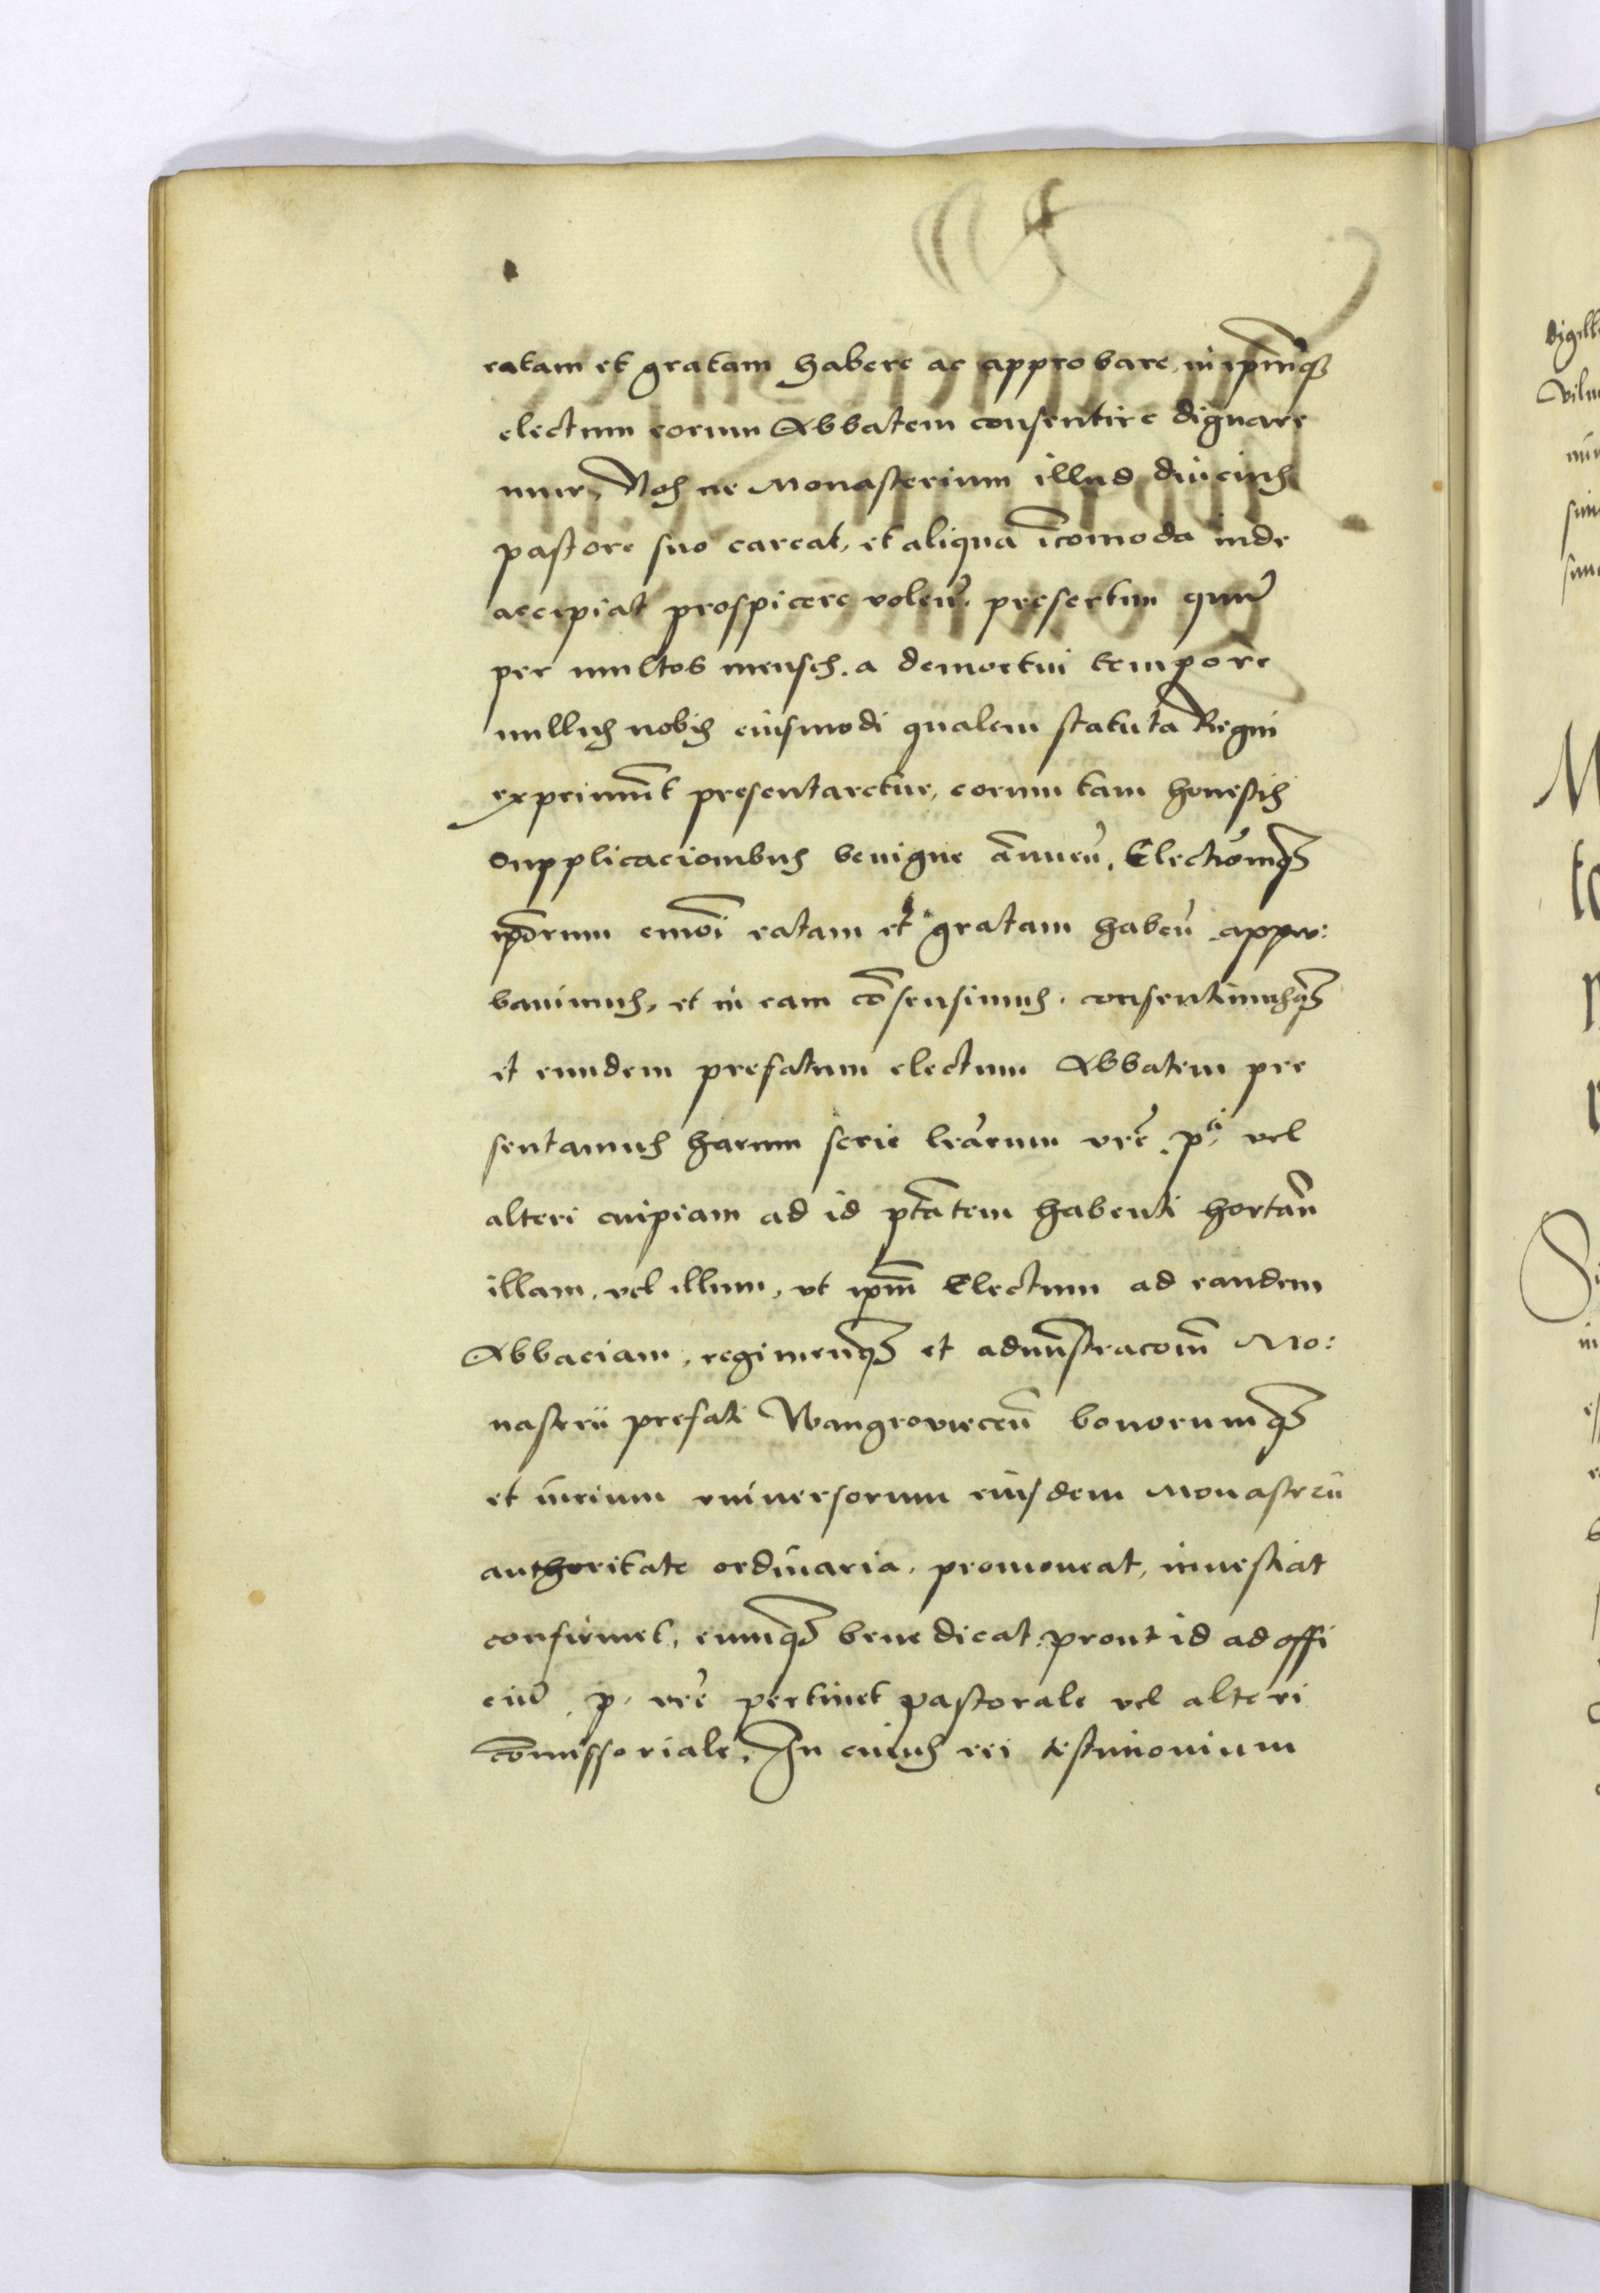 ratam et gratam habere ac approbare, in ip̃mq̃
electum eorum Abbatem consentire dignare
mur, Nos ne Monasterium illud diucius
pastore suo careat, et aliqua ĩcomoda inde
accipiat prospicere volen̄. presertim quũ
per multos menses. a demortui tempore
nullus nobis eiusmodi qualem statuta Regni
exprimũt presentaretur, eorum tam honestis
Supplicacionibus benigne ãnuen̄. Electiõmq̃
ip̃orum em̃oi ratam et gratam haben̄ appro:
bauimus, et in eam cõsensimus. consentimusq̃
et eundem prefatum electum Abbatem pre
sentamus harum serie lr̃arum vr̃e. p. vel
alteri cuipiam ad id p̃tatem habenti hortan̄
illam, vel illum, vt ip̃m Electum ad eandem
Abbaciam, regimenq̃ et adm̃straco͠m Mo:
nasterii prefati Wangroviecen̄ bonorumq̃
et iurium vniuersorum eiusdem Monasterii
authoritate ordinaria. promoueat, inuestiat
confirmet, eumq̃ benedicat, prout id ad offi
ciũ p. vr̃e pertinet pastorale vel alteri
cõmissoriale. In cuius rei testimonium